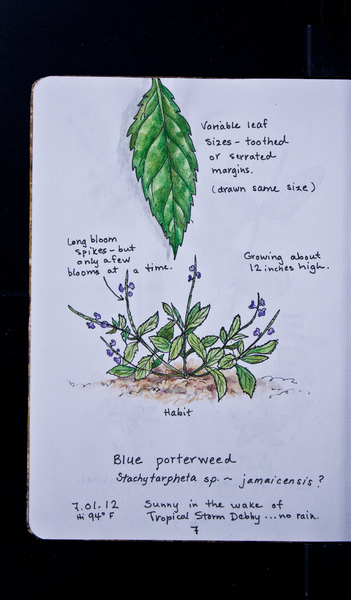 Variable leaf
sizes - toothed
or serrated
margins.
(drawn same size)
Long bloom
spikes - but
only a few
blooms at a time.
Growing about
12 inches high.
Habit
Blue porterweed
Stachytarpheta sp. ~ jamaicensis?
7.01.12
Hi 94° F
Sunny in the wake of
Tropical Storm Debby ... no rain.
7